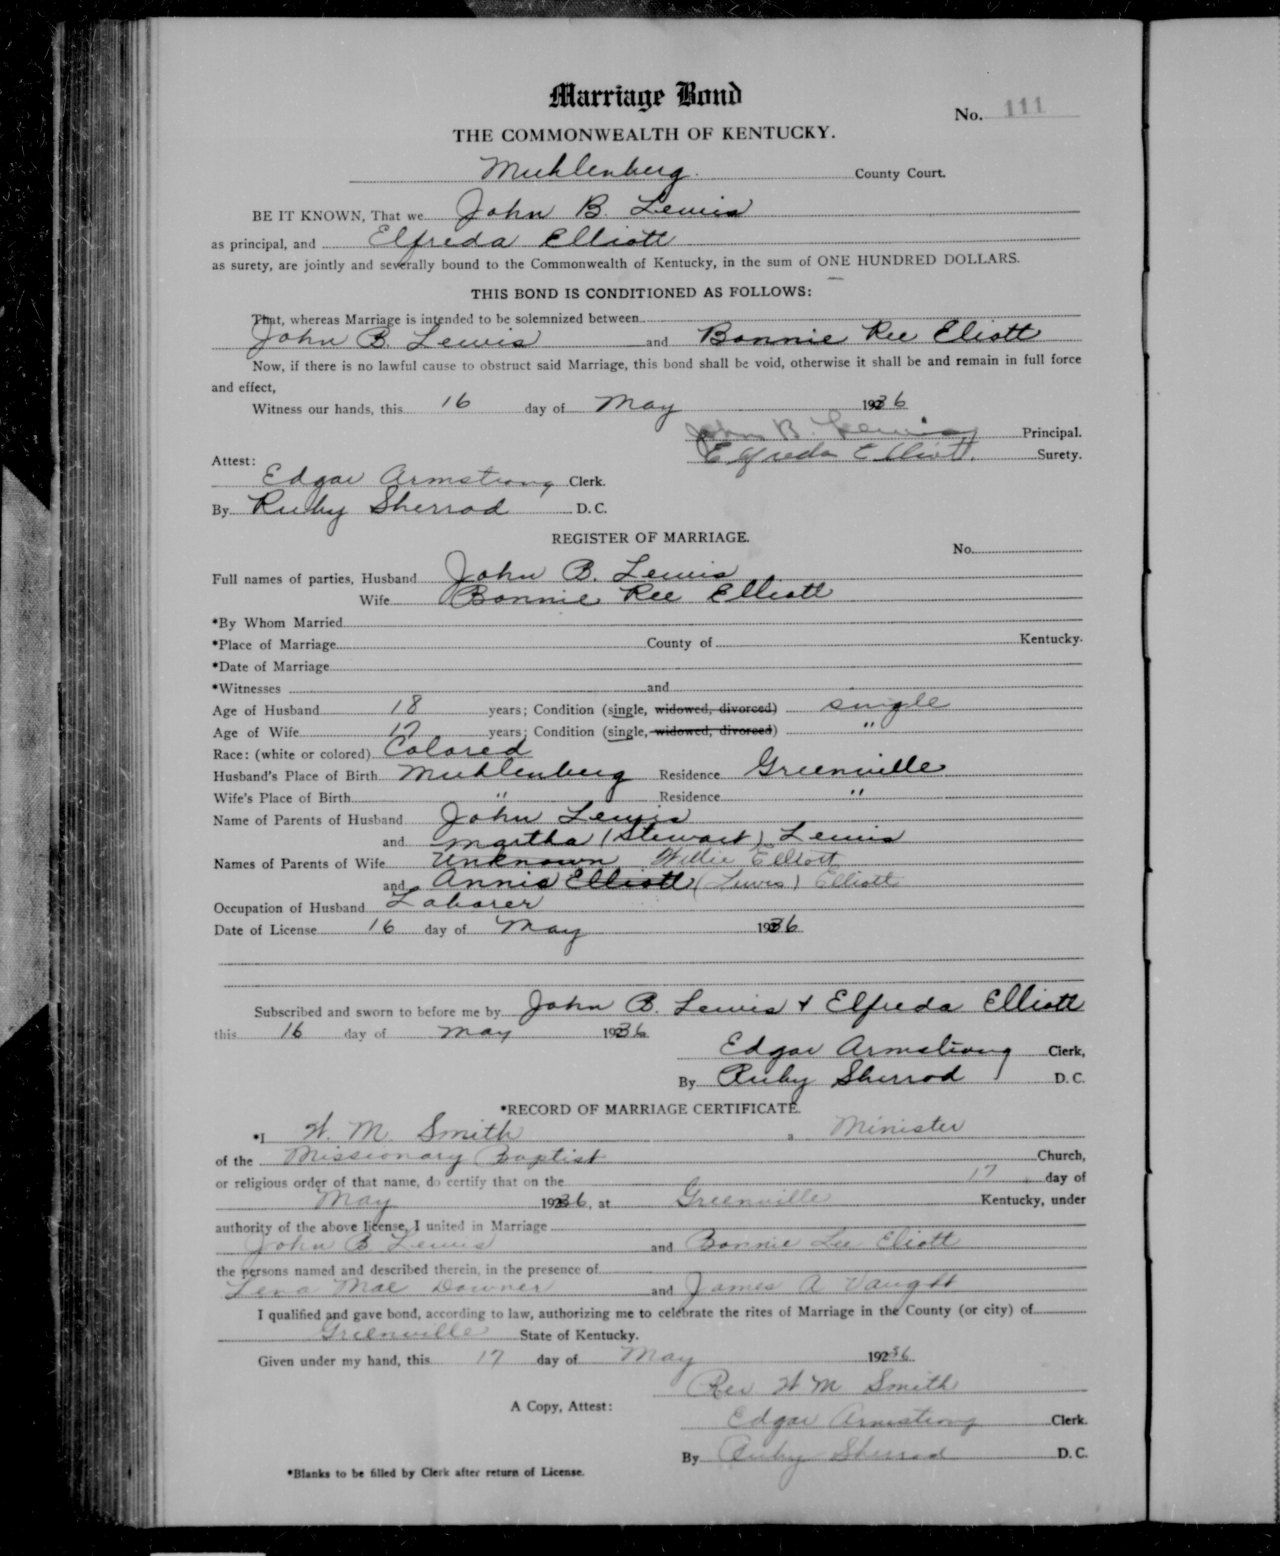 Marriage Bond
No. 111
THE COMMONWEALTH OF KENTUCKY.
Muhlenberg County Court.
BE IT KNOWN, That we John B. Lewis
as principal, and Elfreda Elliott
as surety, are jointly and severally bound to the Commonwealth of Kentucky, in the sum of ONE HUNDRED DOLLARS.
THIS BOND IS CONDITIONED AS FOLLOWS:
That, whereas Marriage is intended to be solemnized between
John B. Lewis and Bonnie Ree Eliott
Now, if there is no lawful cause to obstruct said Marriage, this bond shall be void, otherwise it shall be and remain in full force
and effect,
Witness our hands, this 16 day of May 1936
John B. Lewis Principal.
Elfreda Elliott. Surety.
Attest:
Edgar Armstrong Clerk.
By Ruby Sherrod D. C.
REGISTER OF MARRIAGE.
No.
Full names of parties, Husband John B. Lewis
Wife Bonnie Ree Elliott
*By Whom Married
*Place of Marriage County of Kentucky.
*Date of Marriage
*Witnesses and
Age of Husband 18 years; Condition (single, widowed, divorced) single
Age of Wife 17 years; Condition (single, widowed, divorced) "
Race: (white or colored) Colored
Husband's Place of Birth Muhlenberg Residence Greenville
Wife's Place of Birth " Residence "
Name of Parents of Husband John Lewis
and Martha (Stewart) Lewis
Names of Parents of Wife Unknown Willie Elliott
and Annie Elliott (Lewis) Elliott
Occupation of Husband Laborer
Date of License 16 day of May 1936
Subscribed and sworn to before me by John B. Lewis & Elfreda Elliott
this 16 day of May 1936
Edgar Armstrong Clerk,
By Ruby Sherrod D. C.
*RECORD OF MARRIAGE CERTIFICATE.
*I W. M. Smith , Minister
of the Missionary Baptist Church,
or religious order of that name, do certify that on the 17 day of
May 1936, at Greenville Kentucky, under
authority of the above license, I united in Marriage
John B Lewis and Bonnie Lee Eliott
the persons named and described therein, in the presence of
Lena Mae Downer and James A Vaught
I qualified and gave bond, according to law, authorizing me to celebrate the rites of Marriage in the County (or city) of
Greenville State of Kentucky.
Given under my hand, this 17 day of May 1936
Rev. W M Smith
A Copy, Attest:
Edgar Armstrong Clerk.
By Ruby Sherrod D. C.
*Blanks to be filled by Clerk after return of License.